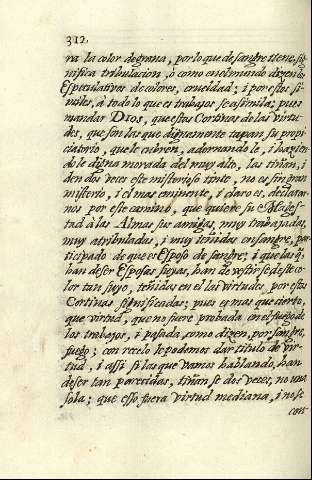 312.
ra la color de grana, por lo que de sangre tiene, sig
nifica tribulacion, ò como en el mundo dizen los
Especulativos de colores, crueldad; i por estos si-
miles, à todo lo que es trabajos se asimila; pues
mandar Dios, que estas Cortinas de las virtu-
des, que son las que dignamente tapan, su propi-
ciatorio, que le cubren, adornandole, i hazien-
dole digna morada del muy alto, las tiñan, i
den dos veces este misterioso tinte, no es sin gran
misterio, i el mas eminente, i claro es, declarar-
nos por este camino, que quiere su Mages-
tad à las Almas sus amigas, muy trabajadas,
muy atribuladas, i muy teñidas en sangre, par-
ticipado de que es Esposo de sangre; i que las q̃
han de ser Esposas suyas, han de vestirse deste co-
lor tan suyo, teñidas en el las virtudes, por estas
Cortinas significadas; pues es mas que cierto,
que virtud, que no fuere probada en el fuego de
los trabajos, i pasada, como dizen, por sangre,
fuego; con recelo le podemos dar titulo de vir-
tud, i assi si las que vamos hablando, han
de ser tan parecidas, tiñan se dos veces, no una
sola; que esso fuera virtud mediana, i no se
con-